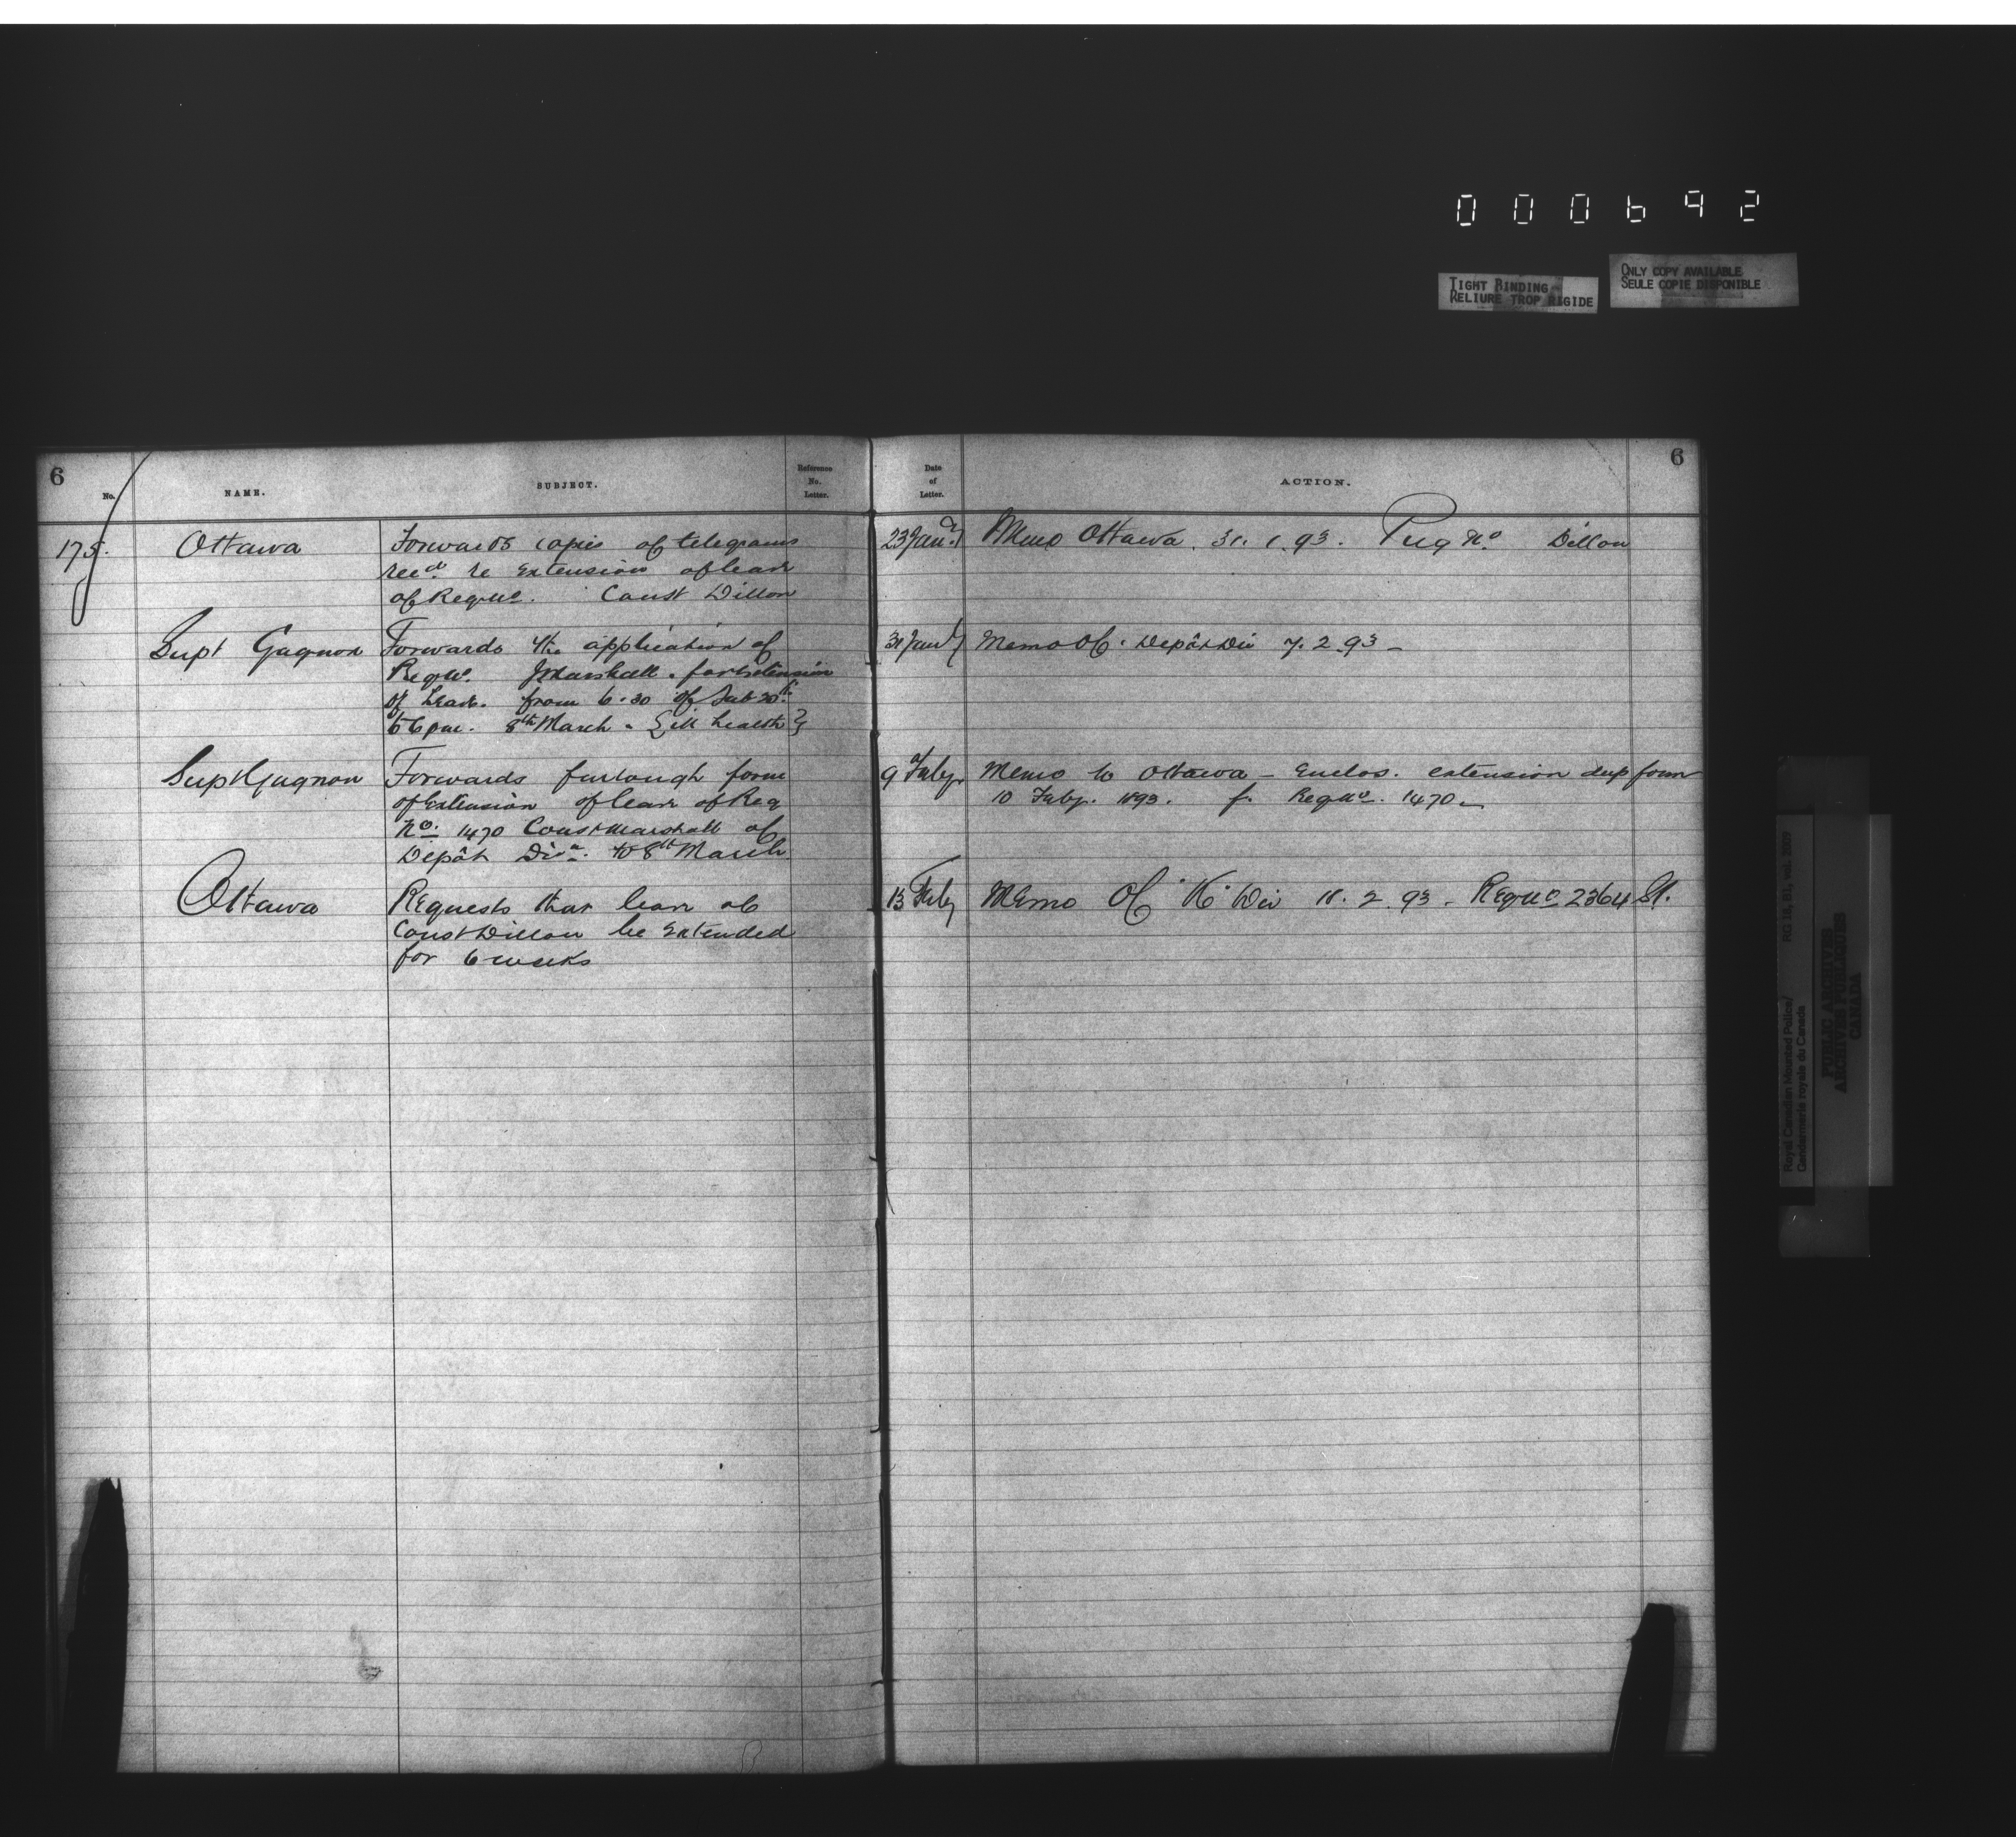 000692
TIGHT BINDING
RELIURE TROP RIGIDE
ONLY COPY AVAILABLE
SEULE COPIE DISPONIBLE
6
No.
NAME.
SUBJECT.
Reference
No.
Letter.
Date
of
Letter.
ACTION.
6
175. Ottawa
Forwards copies of telegrams
recd. re Extension of leave
of Reg No. Const Dillon
23 Jany
Memo Ottawa. 31. 1. 93. Reg No. Dillon
Supt Gagnon
Forwards the application of
Reg No. Marshall. for extension
of Leave. from 6.30 of Feb 20th
to 6 pm. 8th March - {ill health}
31 Jany
Memo OC. Depôt Div 7. 2. 93 -
Supt Gagnon
Forwards furlough form
of Extension of leave of Reg
No. 1470 Const Marshall of
Depôt Divn. to 8th March
9 Feby.
Memo to Ottawa - Enclos. extension dup form
10 Feby. 1893. f. Reg No. 1470 -
Ottawa
Requests that leave of
Const Dillon be Extended
for 6 weeks
13 Feby
Memo OC "K" Div 18. 2. 93. Reg No 2364
Royal Canadian Mounted Police/
Gendarmerie royale du Canada
RG 18, B1, vol. 2009
PUBLIC ARCHIVES
ARCHIVES PUBLIQUES
CANADA